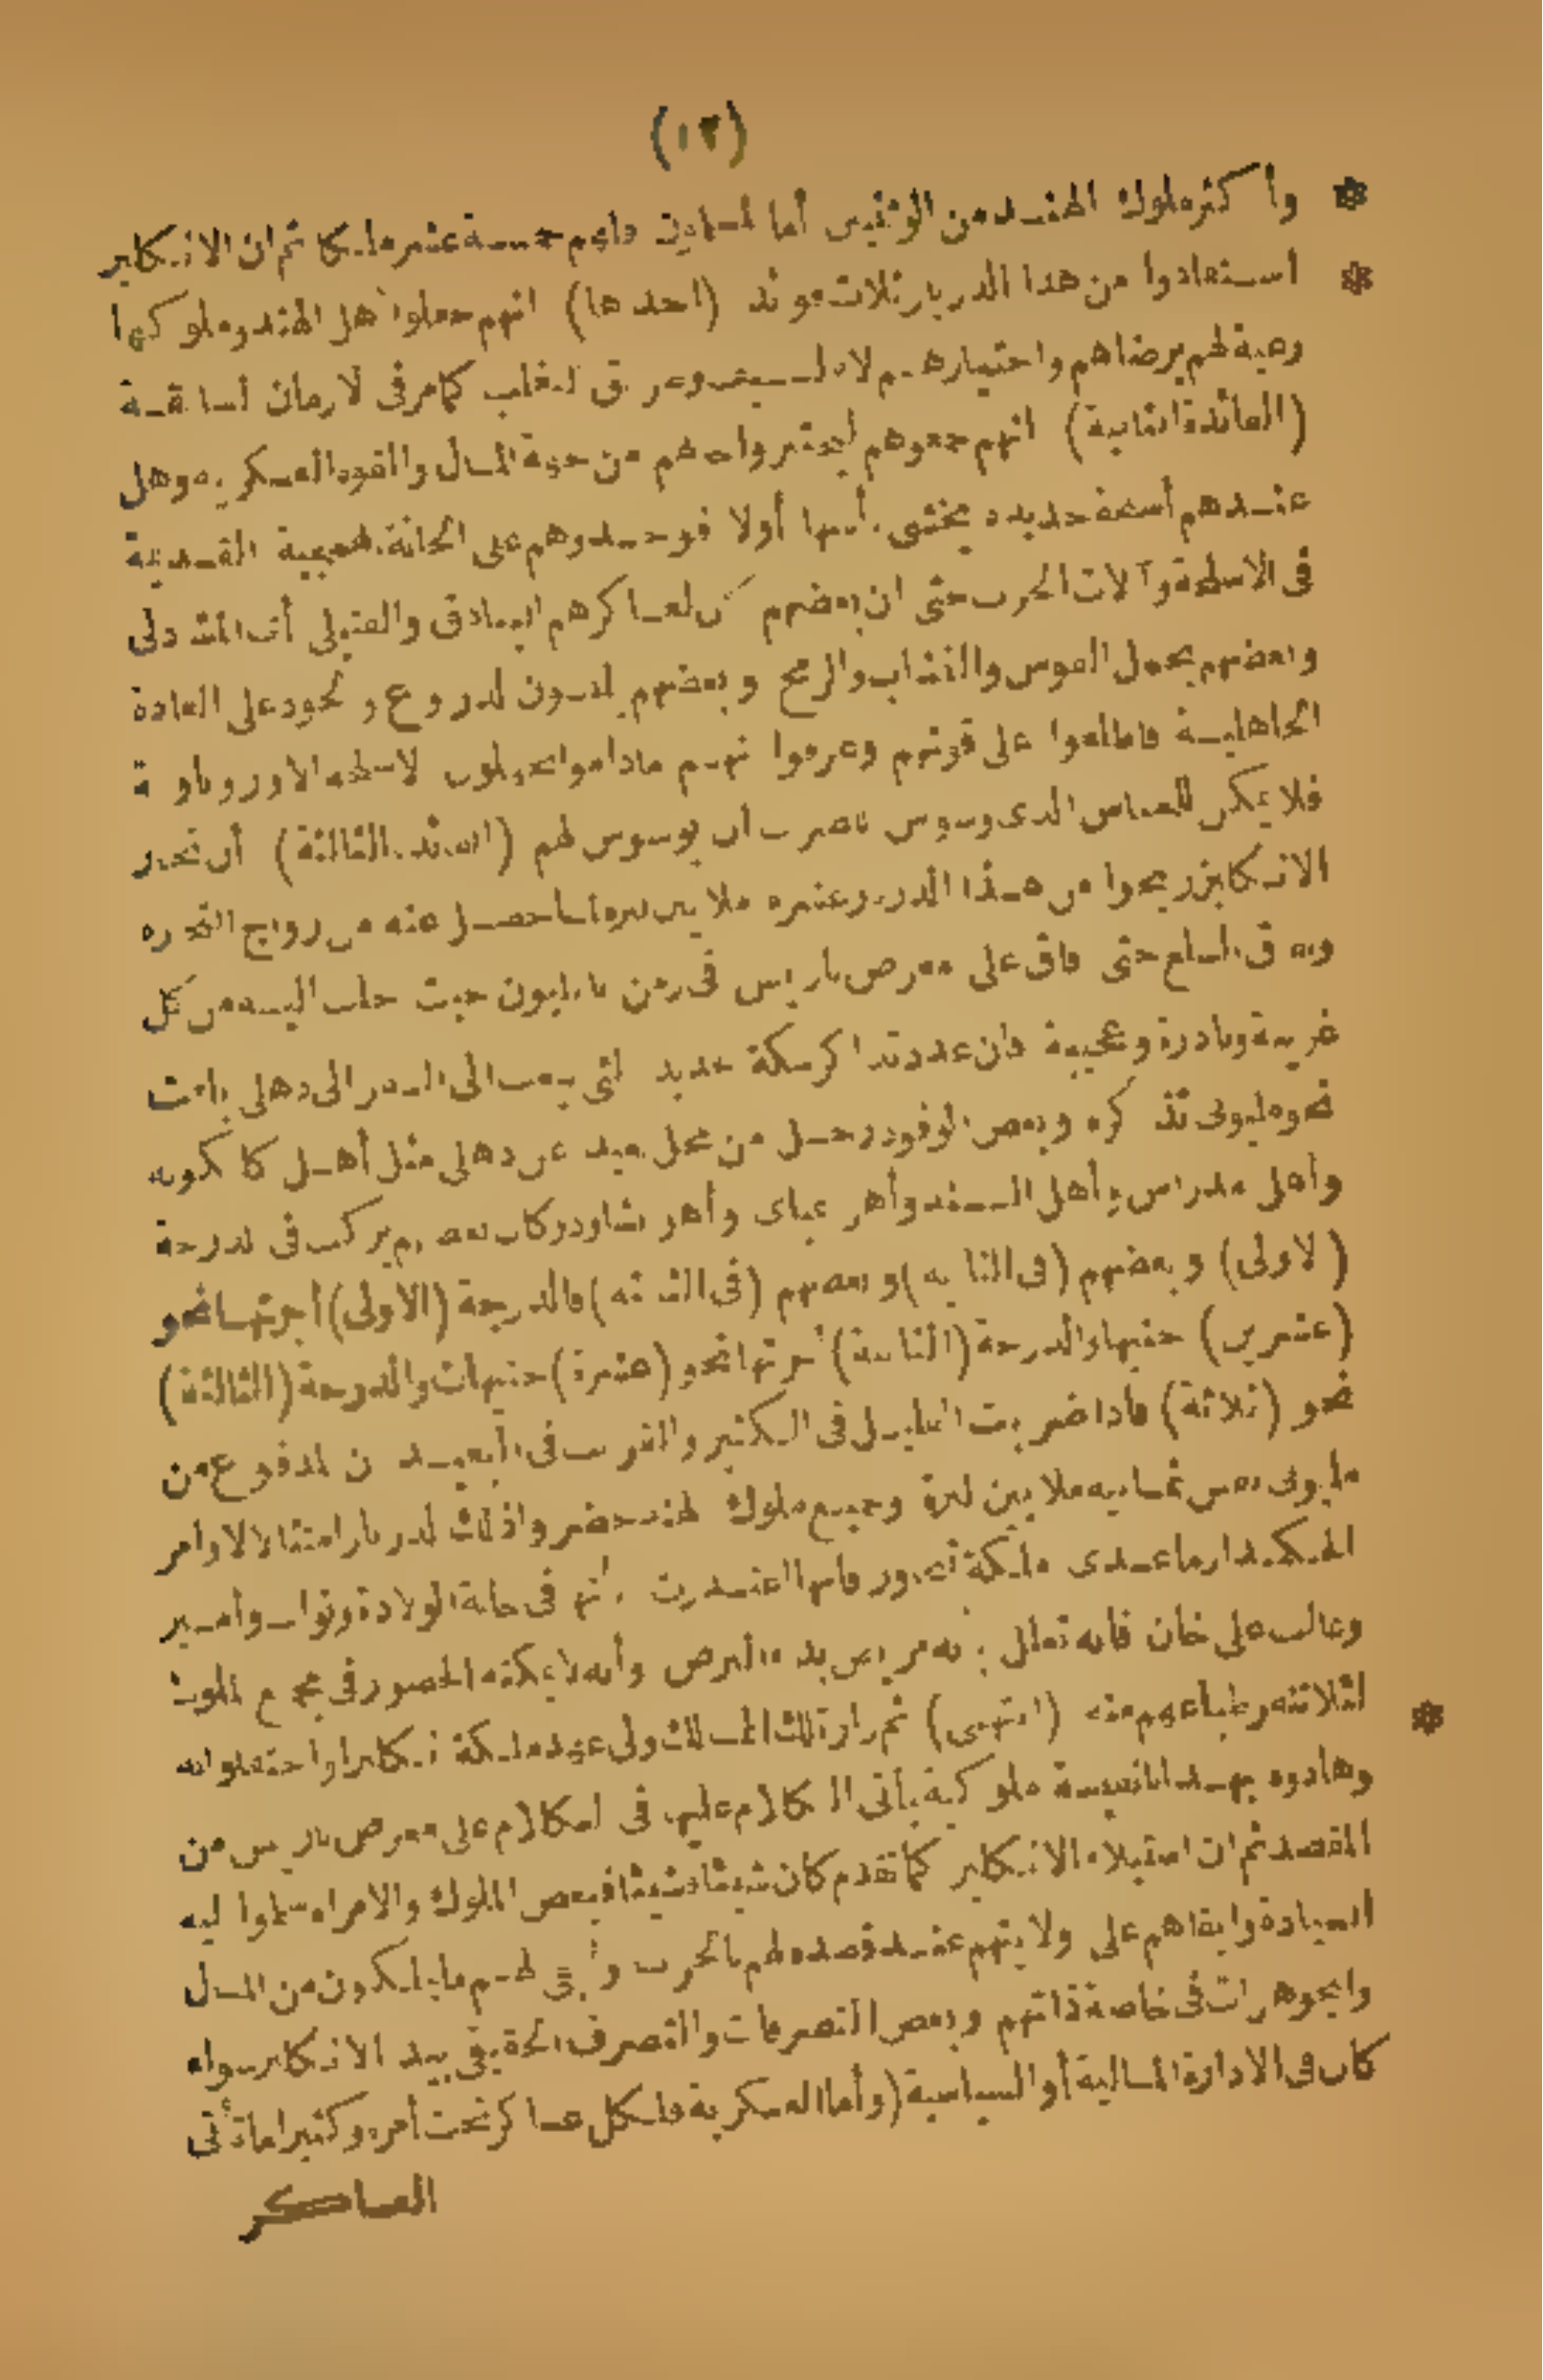 (١٢)
وأكثر ملوك الهند من الوثنيين أما المسلمون فانهم خمسة عشر ملكا ثم ان الانكليز
استفادوا من هذا الدربار ثلاث فوائد (احدها) انهم جعلوا أهل الهند وملوكها
رعية لهم برضاهم واختيارهم لا بالسيف وطريق التغلب كما مر فى الازمان السابقة
(الفائدة الثانية) انهم جمعوهم ليختبروا حالهم من جهة المال والقوة العسكرية وهل
عندهم أسلحة جديدة يخشى بأسها أولا فوجدوهم على الحالة الهمجية القديمة
فى الاسلحة وآلات الحرب حتى ان بعضهم لعساكرهم البنادق والفتيل
وبعضهم يحمل القوس والنشاب والرمح وبعضهم يلبسون الدروع والخود على العادة
الجاهلية فاطلعوا على قوتهم وعرفوا انهم ماداموا الاسلحة الاوروباوية
فلا يمكن للخناس الذى وسوس أن يوسوس لهم (الفائدة الثالثة) أن تجار
الانكليز ربحوا من هذا الدربار عشرة ملايين ليرة لما حصل عنه من رواج التجارة
السلع حتى فاق على معرض باريس فى زمن نابليون حيث جلب اليه من كل
غريبة ونادرة وعجيبة فان عدد تذاكر سكة حديد التى الى دهلى باعت
نحو مليونى تذكرة وبعض الوفود رحل من محل بعيد عن دهلى مثل أهل كلكوته
وأهل مدراس وأهل السند وأهل بمباى وأهل بشاور وكان بعضهم يركب فى الدرجة
(الاولى) وبعضهم (فى الثانية) وبعضهم (فى الثالثة) فالدرجة (الاولى) أجرتها نحو
(عشرين) جنيها والدرجة (الثانية) أجرتها نحو (عشرة) جنيهات والدرجة (الثالثة)
نحو (ثلاثة) فاذا ضربت القليل فى الكثير والقريب فى البعيد المدفوع من
مليونى نفس ثمانية ملايين ليرة وجميع ملوك الهند حضروا ذلك الدربار امتثالا لاوامر
الحكمدار ماعدى ملكة فانها اعتذرت بأنها فى حالة الولادة ونواب وأمير
وغالب على خان فانه تعلل بأنه مريض بداء البرص وأنه لا يمكنه الحضور فى مجمع الملوك
لثلاثته وطباعهم منه (انتهى) ثم زار تلك الممالك ولى عهد ملكة انكلترا واحتفلوا له
وهادوه بهدايا نفيسة ملوكية يأتى الكلام عليها فى الكلام على معرض باريس من
المقصد ثم ان استيلاء الانكليز كما تقدم كان شيئا فشيئا فبعض الملوك والامراء سلموا اليه
السيادة وابقاهم على ولايتهم عند قصده لهم بالحرب وأبقى لهم ما يملكون من المال
والجوهرات فى خاصة ذاتهم وبعض التصرفات والتصرف الحقيقى بيد الانكليز سواء
كان فى الادارة المالية أو السياسية (وأما العسكرية فلكل عساكر تحت أمره وكثيرا ما تأتى
العساكر